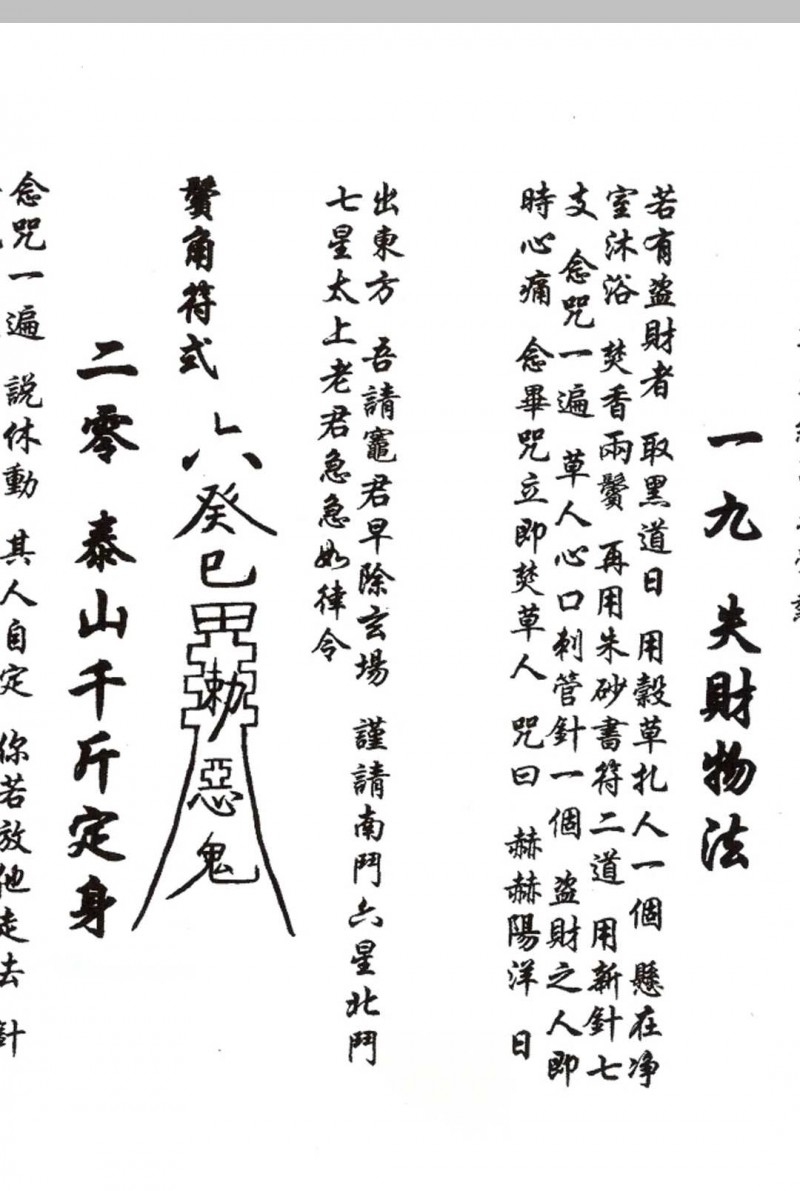 一九 失財物法
若有盜財者 取黑道日 用穀草扎人一個 懸在净
室沐浴 焚香兩鬢 再用朱砂書符二道 用新針七
支 念咒一遍 草人心口刺管針一個 盜財之人即
時心痛 念畢咒立即焚草人 咒曰 赫赫陽洋 日
出東方 吾請竈君早除玄場 謹請南鬥六星北鬥
七星太上老君急急如律令
鬢角符式
六癸巳甲勅惡鬼
二零 泰山千斤定身
念咒一遍 說休動 其人自定 你若放他走去 針